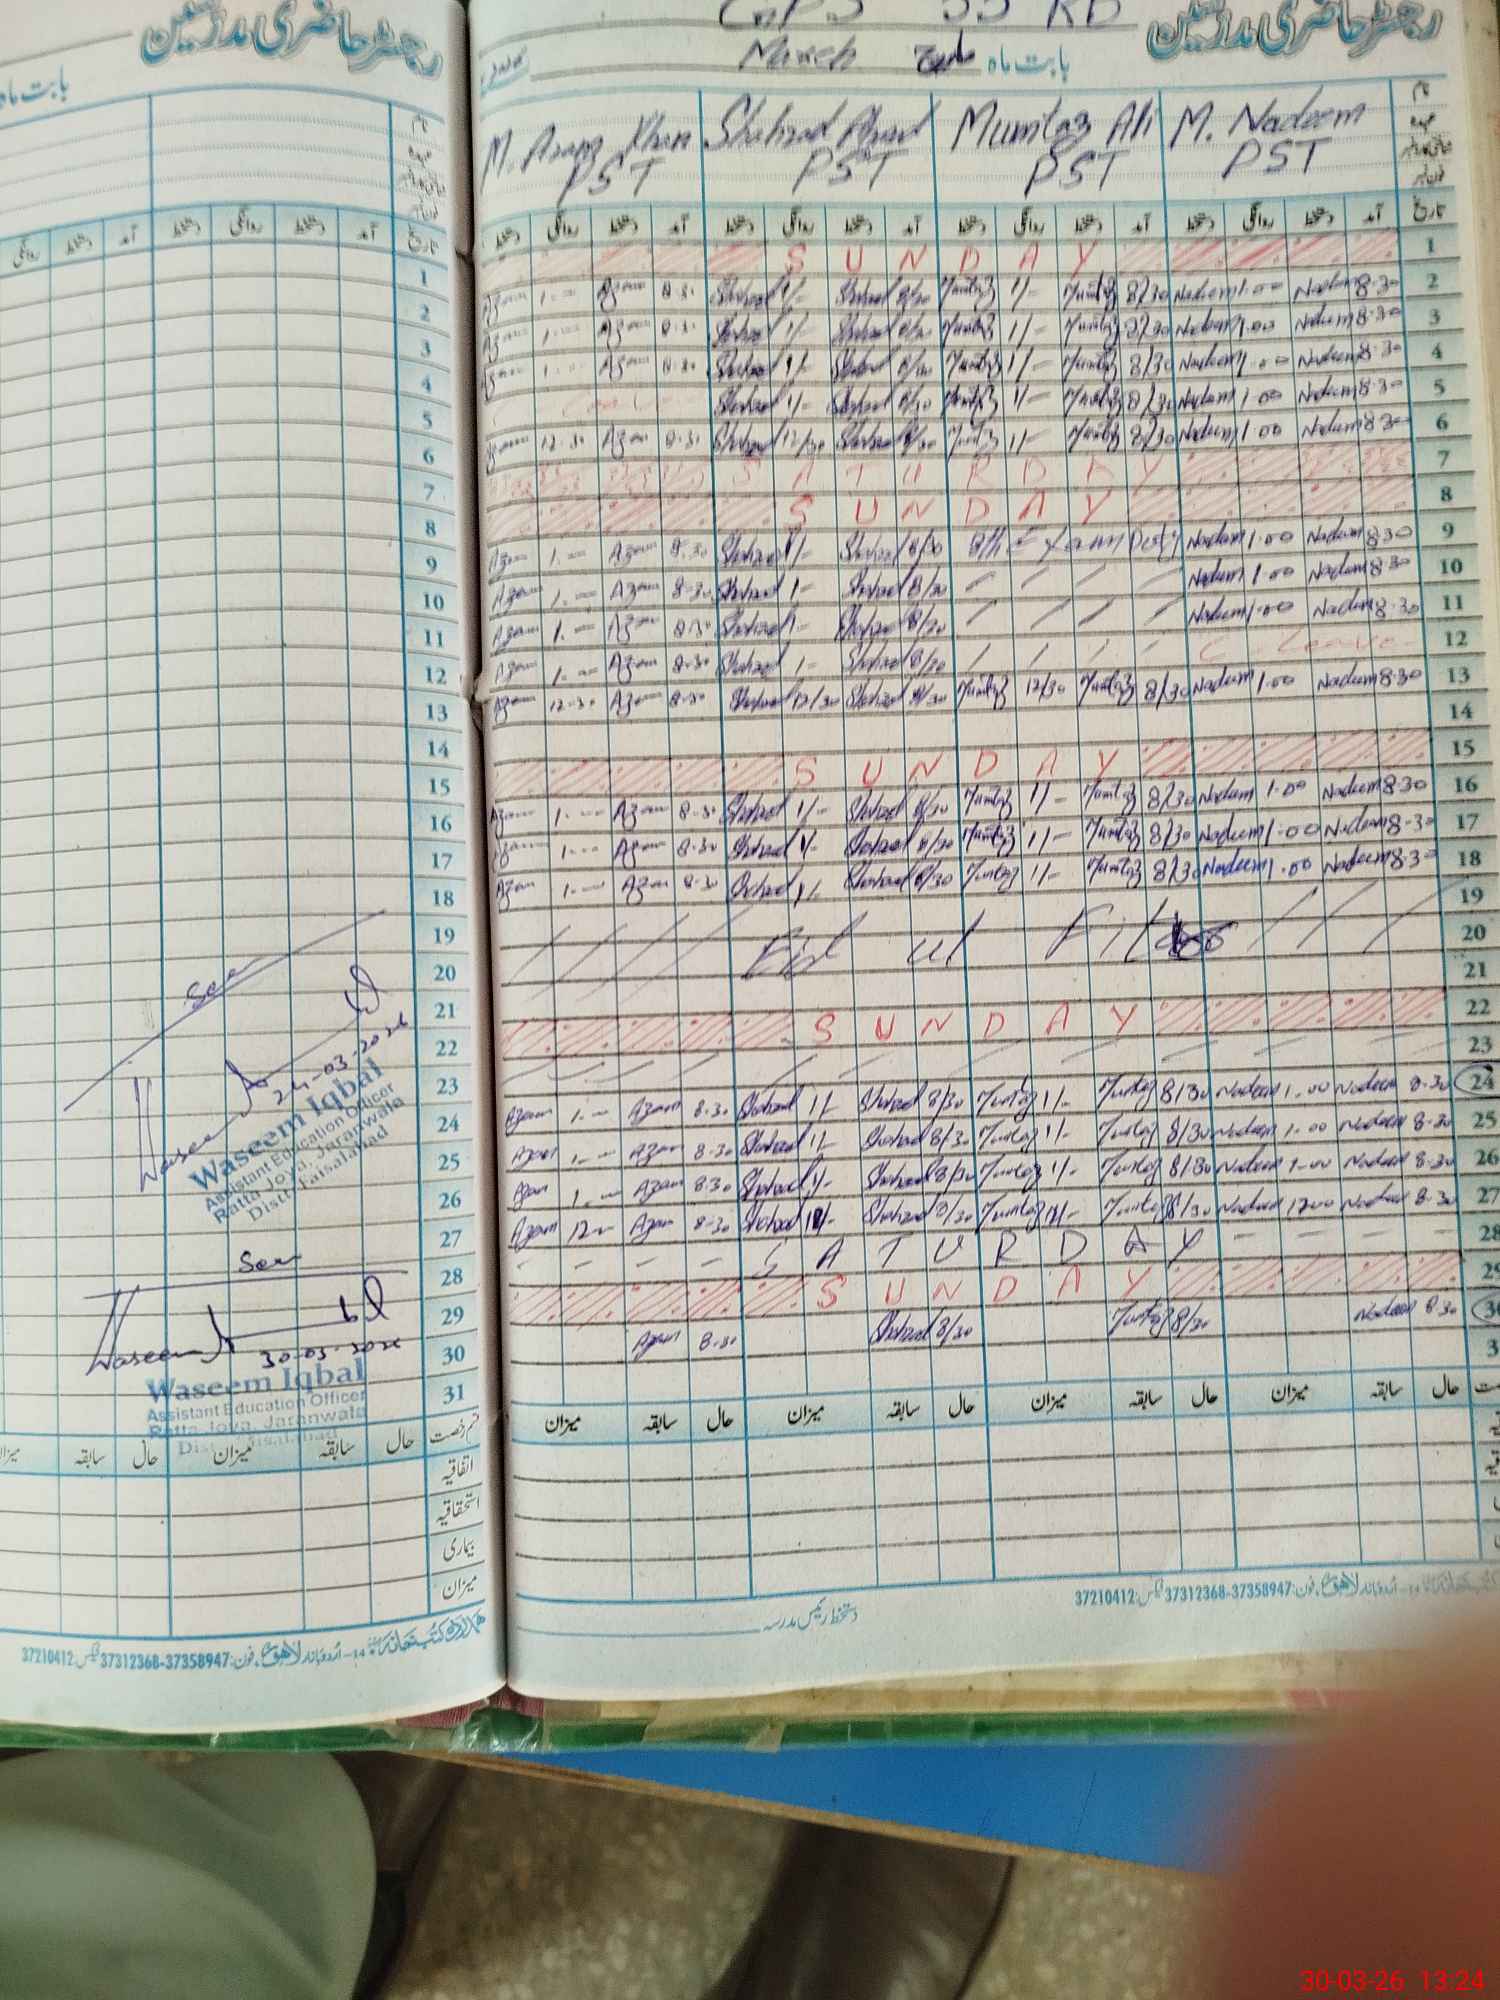 رجسٹر حاضری مدرسین
بابت ماہ
نام
عہدہ
تاریخ آمد دستخط روانگی دستخط آمد دستخط روانگی
1
2
3
4
5
6
7
8
9
10
11
12
13
14
15
16
17
18
19
20
21
22
23
24
25
26
27
28
29
30
31
Seen
Waseem
24-03-2026
Waseem Iqbal
Assistant Education Officer
Ratta Joya, Jaranwala
Distt. Faisalabad
Seen
Waseem
30-03-2026
Waseem Iqbal
Assistant Education Officer
Ratta Joya, Jaranwala
قسم رخصت حال سابقہ میزان حال سابقہ میزان
اتفاقیہ
استحقاقیہ
بیماری
میزان
ہمدرد کتب خانہ 14-اردو بازار لاہور، فون: 37358947-37312368 فیکس: 37210412
GPS 55 RB
رجسٹر حاضری مدرسین
بابت ماہ March
M. Azam Khan Shahzad Ahmad Mumtaz Ali M. Nadeem
PST PST PST PST
تاریخ آمد دستخط روانگی دستخط آمد دستخط روانگی دستخط آمد دستخط روانگی دستخط آمد دستخط روانگی دستخط
SUNDAY 1
Azam 1.— Azam 8.30 Shahzad 1/- Shahzad 8/30 Mumtaz 1/- Mumtaz 8/30 Nadeem 1.00 Nadeem 8.30 2
Azam 1.— Azam 8.30 Shahzad 1/- Shahzad 8/30 Mumtaz 1/- Mumtaz 8/30 Nadeem 1.00 Nadeem 8.30 3
Azam 1.— Azam 8.30 Shahzad 1/- Shahzad 8/30 Mumtaz 1/- Mumtaz 8/30 Nadeem 1.00 Nadeem 8.30 4
Shahzad 1/- Shahzad 8/30 Mumtaz 1/- Mumtaz 8/30 Nadeem 1.00 Nadeem 8.30 5
Azam 12.30 Azam 8.30 Shahzad 12/30 Shahzad 8/30 Mumtaz 1/- Mumtaz 8/30 Nadeem 1.00 Nadeem 8.30 6
SATURDAY 7
SUNDAY 8
Azam 1.— Azam 8.30 Shahzad 1/- Shahzad 8/30 8th Exam Duty Nadeem 1.00 Nadeem 8.30 9
Azam 1.— Azam 8.30 Shahzad 1/- Shahzad 8/30 Nadeem 1.00 Nadeem 8.30 10
Azam 1.— Azam 8.30 Shahzad 1/- Shahzad 8/30 Nadeem 1.00 Nadeem 8.30 11
Azam 1.— Azam 8.30 Shahzad 1/- Shahzad 8/30 C. Leave 12
Azam 12.30 Azam 8.30 Shahzad 12/30 Shahzad 8/30 Mumtaz 12/30 Mumtaz 8/30 Nadeem 1.00 Nadeem 8.30 13
14
SUNDAY 15
Azam 1.— Azam 8.30 Shahzad 1/- Shahzad 8/30 Mumtaz 1/- Mumtaz 8/30 Nadeem 1.00 Nadeem 8.30 16
Azam 1.— Azam 8.30 Shahzad 1/- Shahzad 8/30 Mumtaz 1/- Mumtaz 8/30 Nadeem 1.00 Nadeem 8.30 17
Azam 1.— Azam 8.30 Shahzad 1/- Shahzad 8/30 Mumtaz 1/- Mumtaz 8/30 Nadeem 1.00 Nadeem 8.30 18
19
Eid ul 20
21
SUNDAY 22
23
Azam 1.— Azam 8.30 Shahzad 1/- Shahzad 8/30 Mumtaz 1/- Mumtaz 8/30 Nadeem 1.00 Nadeem 8.30 24
Azam 1.— Azam 8.30 Shahzad 1/- Shahzad 8/30 Mumtaz 1/- Mumtaz 8/30 Nadeem 1.00 Nadeem 8.30 25
Azam 1.— Azam 8.30 Shahzad 1/- Shahzad 8/30 Mumtaz 1/- Mumtaz 8/30 Nadeem 1.00 Nadeem 8.30 26
Azam 12— Azam 8.30 Shahzad Shahzad 8/30 Mumtaz Mumtaz 8/30 Nadeem 1200 Nadeem 8.30 27
SATURDAY 28
SUNDAY 29
Azam 8.30 Shahzad 8/30 Mumtaz 8/30 Nadeem 8.30 30
3
حال سابقہ میزان حال سابقہ میزان حال سابقہ میزان حال سابقہ میزان
لاہور، فون: 37358947-37312368 فیکس: 37210412
دستخط رئیس مدرسہ
30-03-26 13:24